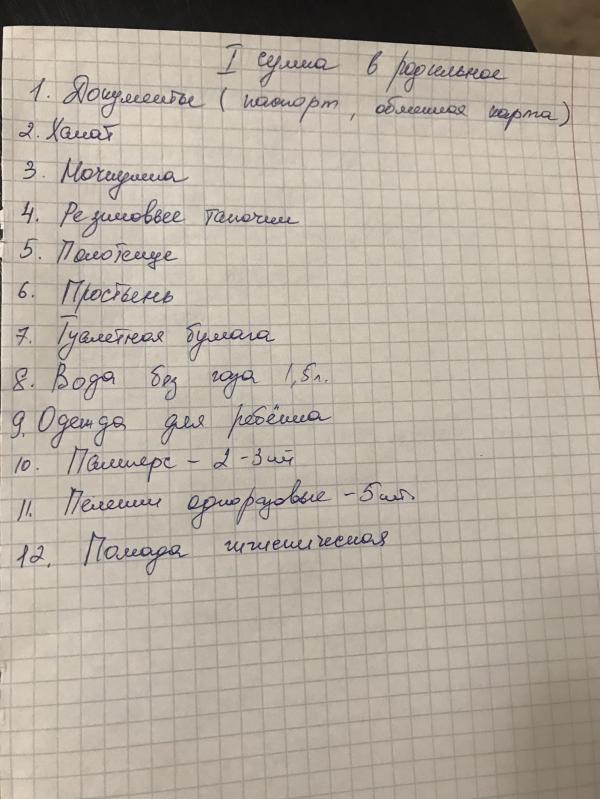 I сумка в родильное
1. Документы (паспорт, обменная карта)
2. Халат
3. Ночнушка
4. Резиновые тапочки
5. Полотенце
6. Простынь
7. Туалетная бумага
8. Вода без газа 1,5 л.
9. Одежда для ребёнка
10. Памперс - 2-3 шт
11. Пеленки одноразовые - 5 шт.
12. Помада гигиеническая